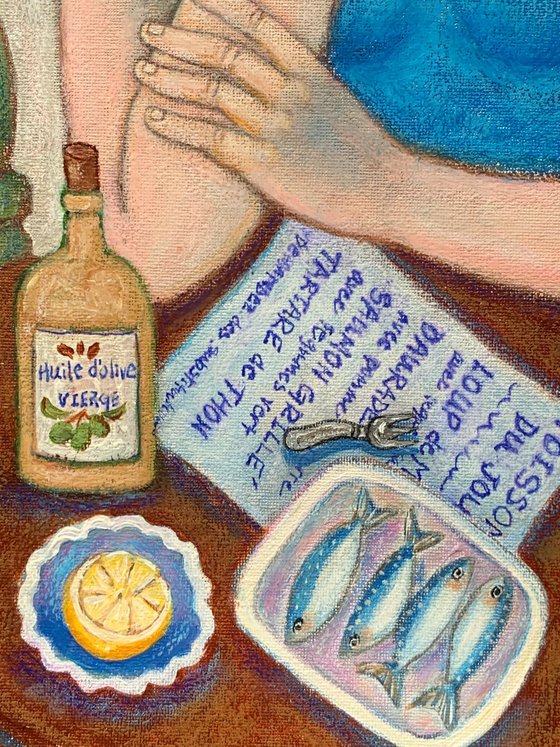 Huile d'olive
VIERGE
OISSON
DU JOU
LOUP de M
avec
DAURADE
avec pomme
SAUMON GRILLÉ
avec légumes vert
TARTARE de THON
Demandez des